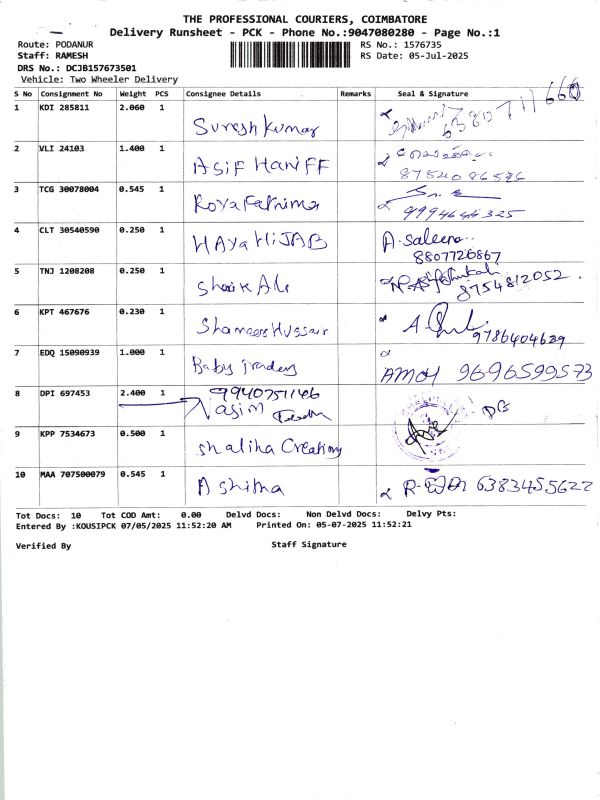 THE PROFESSIONAL COURIERS, COIMBATORE
Delivery Runsheet - PCK - Phone No.:9047080280 - Page No.:1
Route: PODANUR RS No.: 1576735
Staff: RAMESH RS Date: 05-Jul-2025
DRS No.: DCJB157673501
Vehicle: Two Wheeler Delivery
S No Consignment No Weight PCS Consignee Details Remarks Seal & Signature
1 KDI 285811 2.060 1 Suresh kumar 6380711660
2 VLI 24103 1.400 1 Asif Haniff
8754086526
3 TCG 30078004 0.545 1 Roya Fathima
9994644325
4 CLT 30540590 0.250 1 HAYa HiJAB A. Saleena
8807726867
5 TNJ 1208208 0.250 1 Shaik Ali
8754812052.
6 KPT 467676 0.230 1 Shameer Hussair
9786404629
7 EDQ 15090939 1.000 1 Baby traders
AMOY 9696599573
8 DPI 697453 2.400 1 9940751146
Nasim
9 KPP 7534673 0.500 1 Shaliha Creations
10 MAA 707500079 0.545 1 Ashitha 6383455622
Tot Docs: 10 Tot COD Amt: 0.00 Delvd Docs: Non Delvd Docs: Delvy Pts:
Entered By :KOUSIPCK 07/05/2025 11:52:20 AM Printed On: 05-07-2025 11:52:21
Verified By Staff Signature